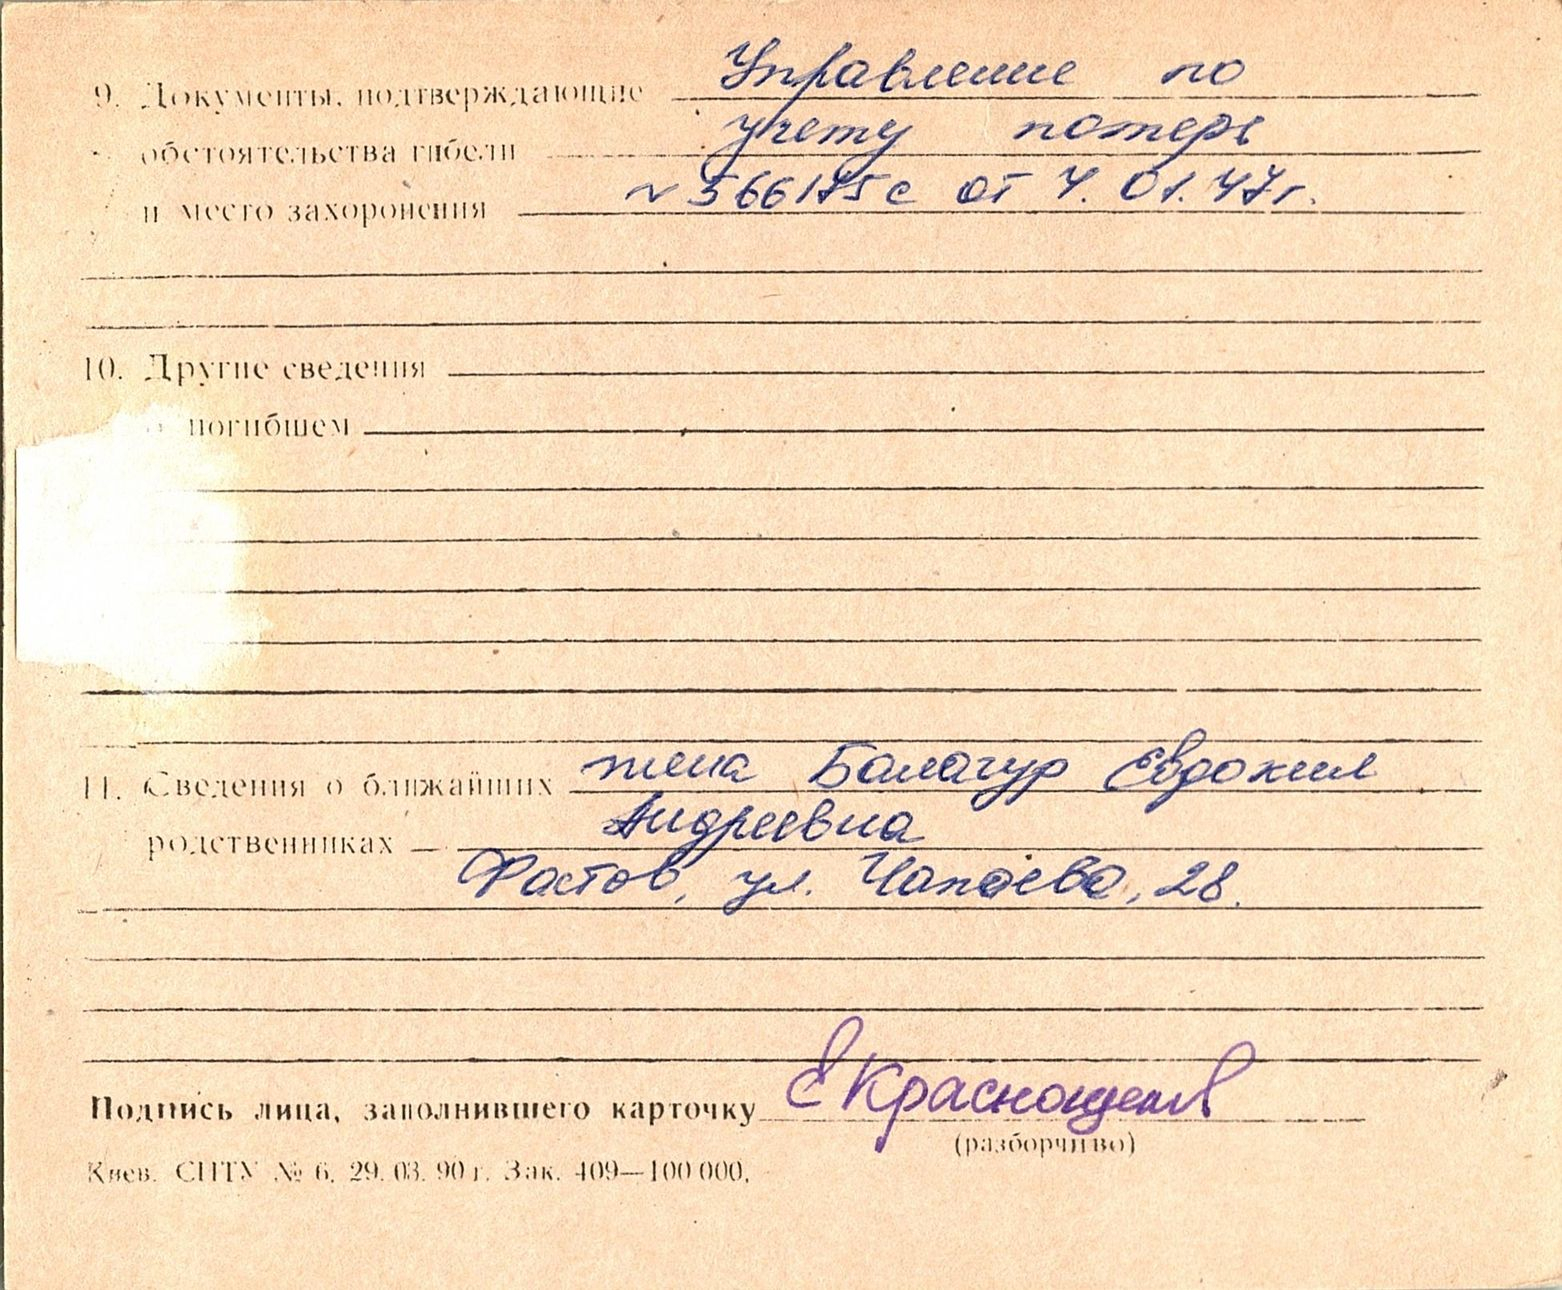 9. Документы, подтверждающие Управление по
обстоятельства гибели учету потерь
и место захоронения № 566175с от 4.01.47г.
10. Другие сведения
о погибшем
11. Сведения о ближайших жена Балагур Евдокия
родственниках Андреевна
Фастов, ул. Чапаева, 28.
Подпись лица, заполнившего карточку ЕКраснощекая
(разборчиво)
Киев. СПТУ № 6. 29. 03. 90 г. Зак. 409—100 000.